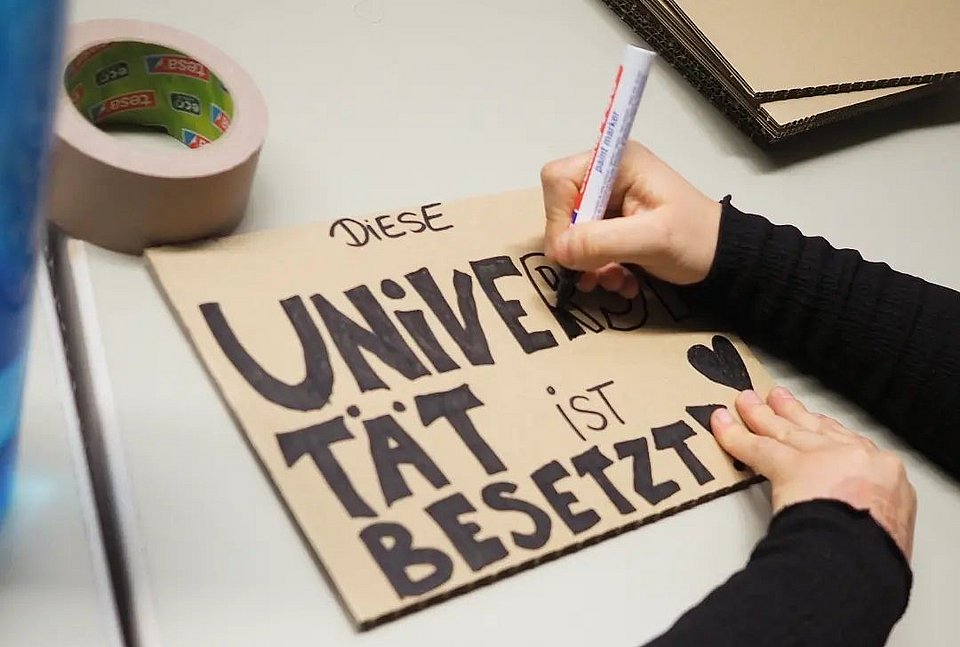 DiESE
UNiVERSI
TÄT iST
BESETZT!
paint marker
tesa
eco
tesa
eco